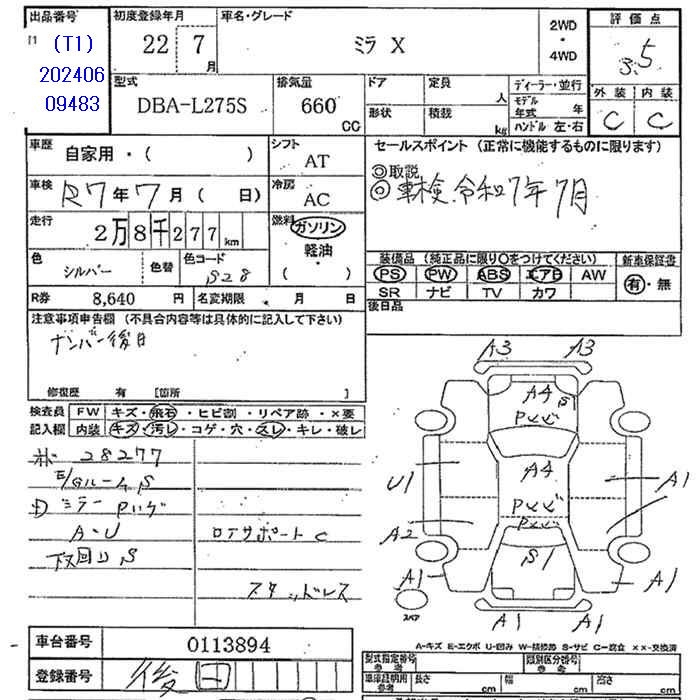 出品番号
(T1)
202406
09483
初度登録年月
22 7
月
車名・グレード
ミラ X
2WD
・
4WD
評価点
3.5
外装 内装
C C
型式
DBA-L275S
排気量
660
CC
ドア
形状
定員
人
積載
kg
ディーラー・並行
モデル
年式 年
ハンドル 左・右
車歴
自家用・( )
シフト
AT
セールスポイント (正常に機能するものに限ります)
◎取説
◎車検 令和7年7月
車検
R7年7月( 日)
冷房
AC
走行
2万8千277km
燃料
ガソリン
軽油・
( )
色
シルバー
色替
色コード
S28
装備品 (純正品に限り○をつけてください)
PS PW ABS エアB AW
SR ナビ TV カワ
新車保証書
有・無
後日品
R券
8,640 円
名変期限 月 日
注意事項申告欄 (不具合内容等は具体的に記入して下さい)
ナンバー後日
修復歴 有 [箇所 ]
検査員
記入欄
FW キズ・飛石・ヒビ割・リペア跡・×要
内装 キズ・汚レ・コゲ・穴・スレ・キレ・破レ
28277
E/Gルーム S
ミラー Pハゲ
A・U
下回り S
ロアサポート C
スタッドレス
A3 A3
A4 S1
Pとビ
A4
U1 A1
Pとビ
Pとビ
A2
S1
A1 A1
スペア
A1 A1
A-キズ E-エクボ U-凹み W-補修跡 S-サビ C-腐食 ××-交換済
車台番号
0113894
登録番号
後日
型式指定番号
参考
類別区分番号
参考
車庫証明用
参考
長さ cm
幅 cm
高さ cm